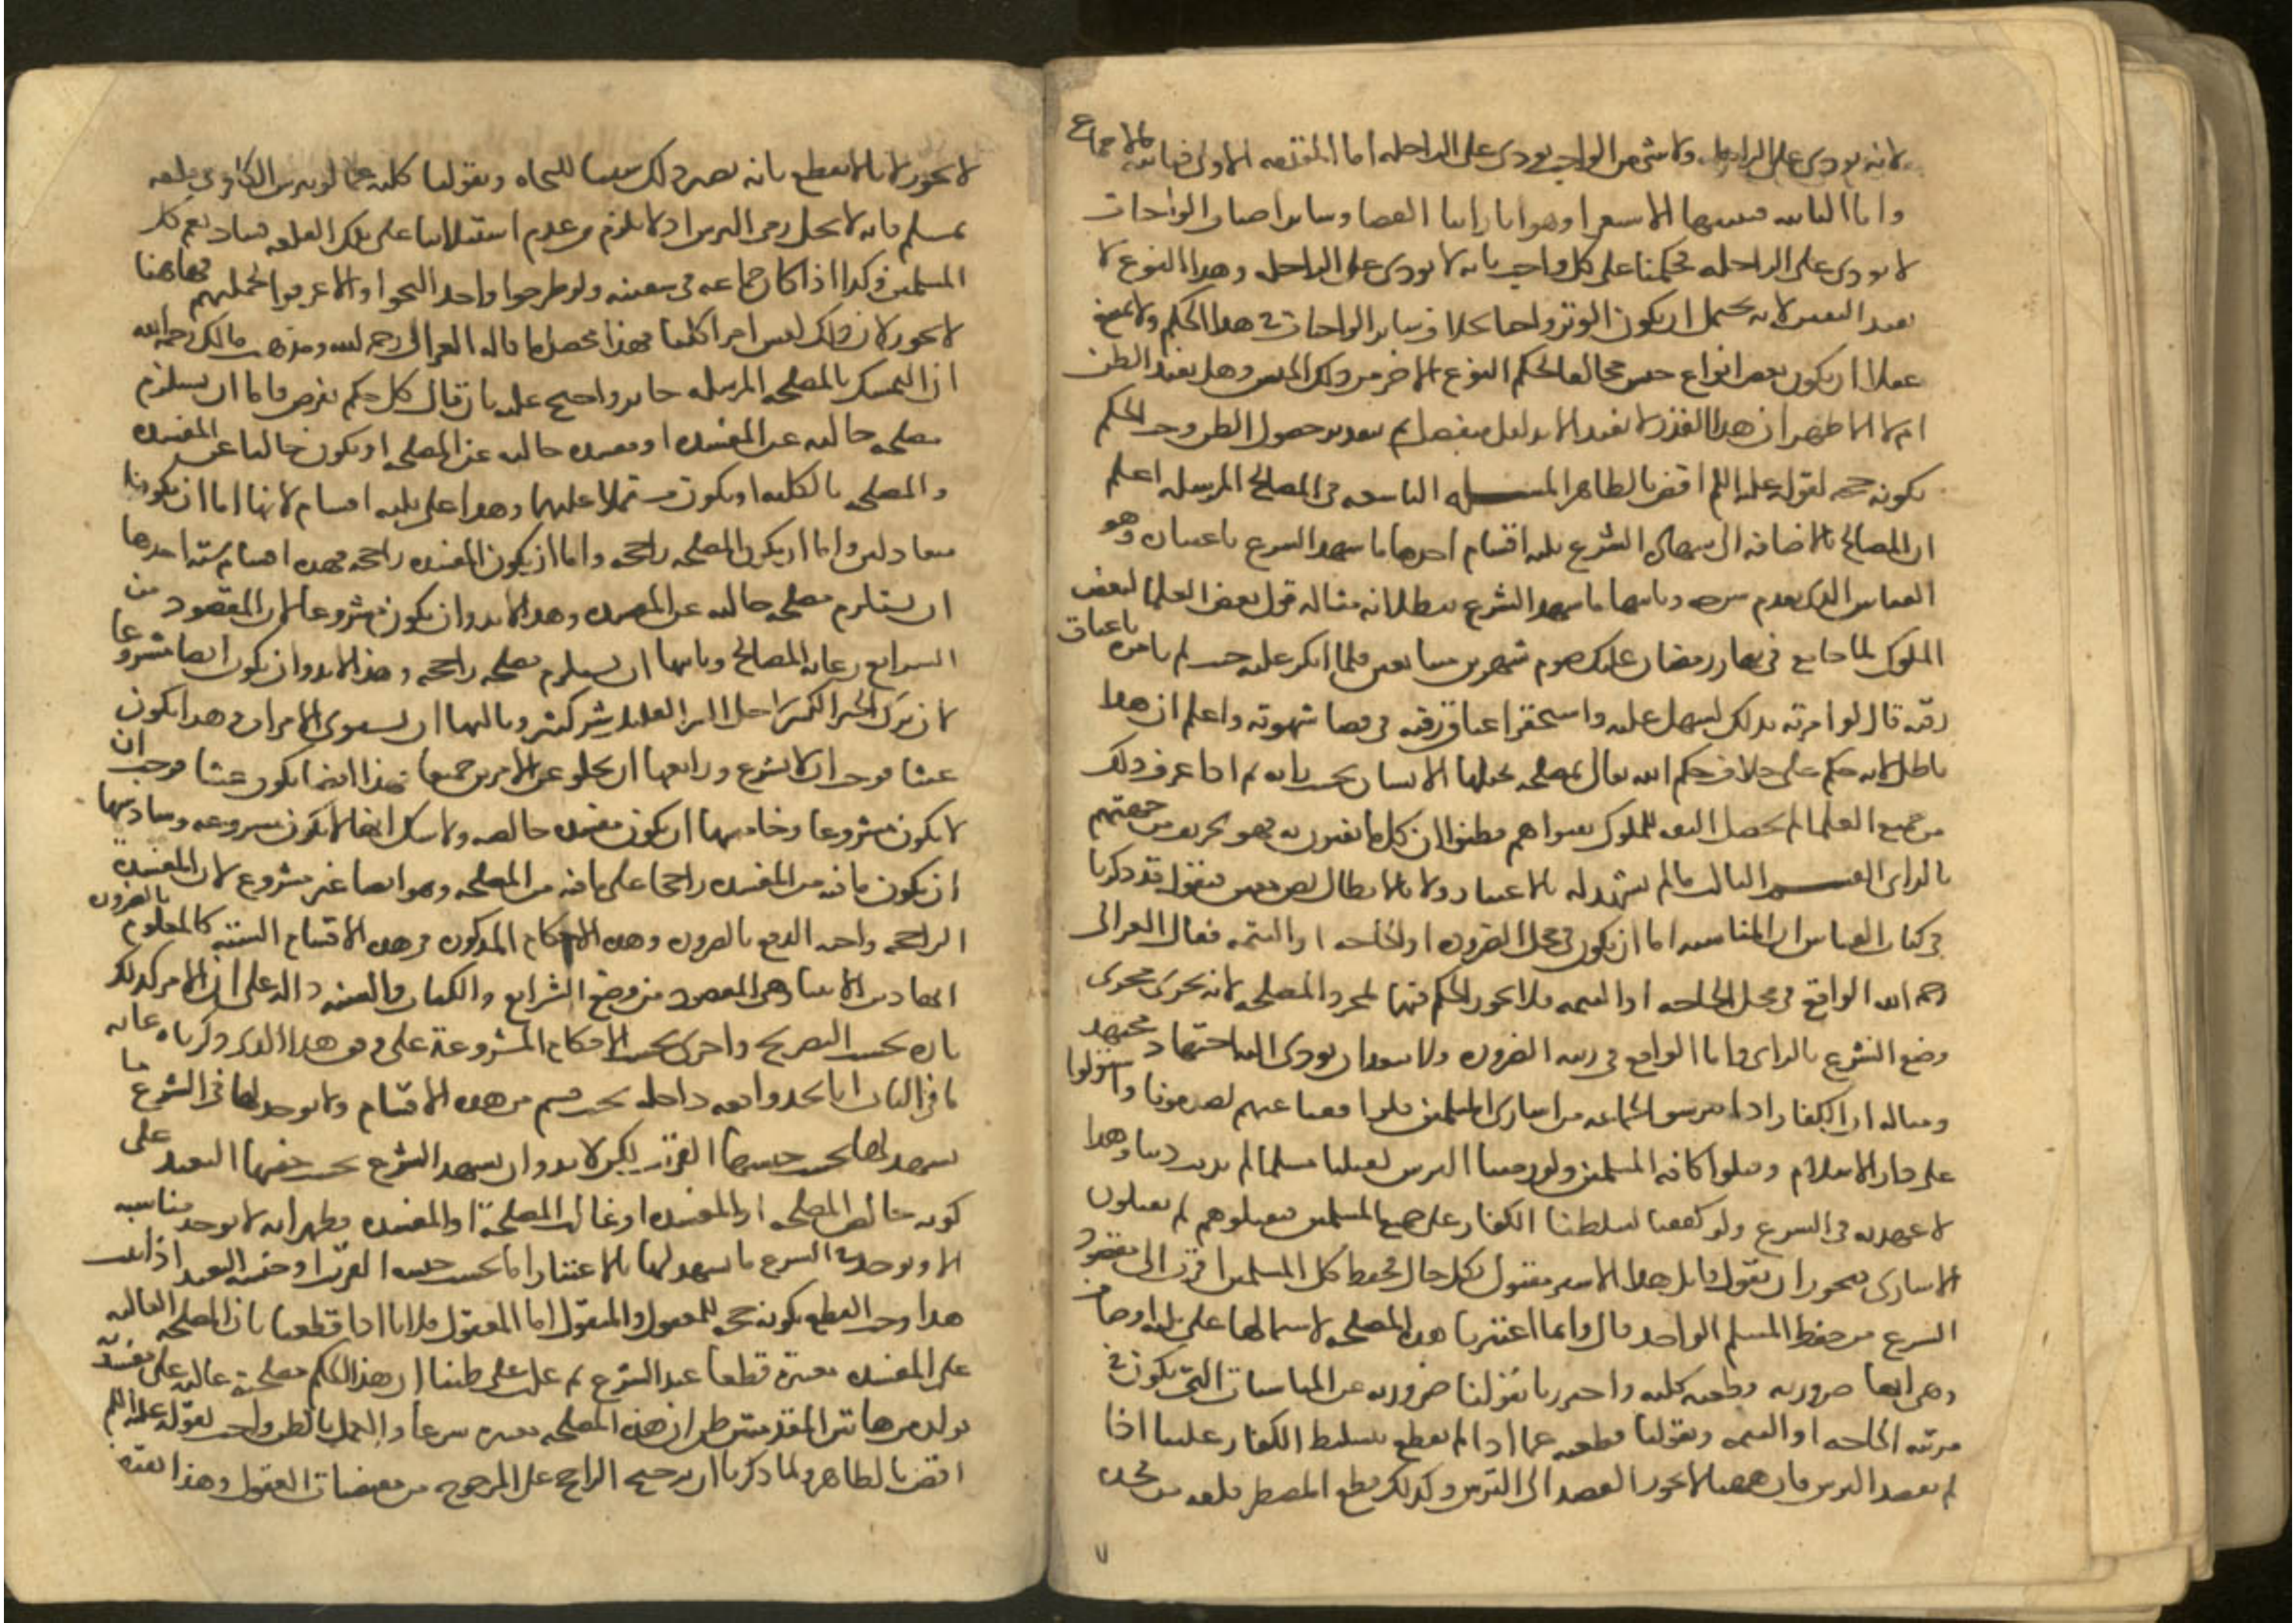 لانه يودى على الراحله ولا شى من الواجب يودى على الراحله اما المقدمه الاولى فثابته بالاجماع
واما الثانيه فنثبتها بالاستقرا وهو انا راينا القضا وساير اصناف الواجبات
لا يودى على الراحله فحكمنا على كل واجب بانه لا يودى على الراحله وهذا النوع لا
يفيد اليقين لانه يحتمل ان يكون الوتر واجبا بخلاف ساير الواجبات في هذا الحكم ولا يمتنع
عقلا ان يكون بعض انواع جنس مخالفا لحكم النوع الاخر من ذلك الجنس وهل يفيد الظن
ام لا الاظهر ان هذا القدر لا يفيد الا بدليل منفصل ثم بتقدير حصول الظن وجب الحكم
بكونه حجه لقوله عليه السلم اقض بالظاهر المسله التاسعه في المصالح المرسله اعلم
ان المصالح بالاضافه الى شهاده الشرع ثلثه اقسام احدها ما شهد الشرع باعتباره وهو
القياس الذي تقدم شرحه وثانيها ما شهد الشرع ببطلانه مثاله قول بعض العلما لبعض
الملوك لما جامع في نهار رمضان عليك صوم شهرين متتابعين فلما انكر عليه حيث لم يامره باعتاق
رقبه قال لو امرته بذلك لسهل عليه واستحقر اعتاق رقبه في قضا شهوته واعلم ان هذا
باطل لانه حكم على خلاف حكم الله تعالى لمصلحه تخيلها الانسان بحسب رايه ثم اذا عرف ذلك
من جميع العلما لم تحصل الثقه للملوك بفتواهم وظنوا ان كل ما يفتون به فهو تحريف من جهتهم
بالراى القسم الثالث ما لم يشهد له بالاعتبار ولا بالابطال نص معين فنقول قد ذكرنا
في كتاب القياس ان المناسبه اما ان يكون في محل الضروره او الحاجه او التتمه فقال الغزالى
رحمه الله الواقع في محل الحاجه او التتمه فلا يجوز الحكم فيها لمجرد المصلحه لانه يجرى مجرى
وضع الشرع بالراى واما الواقع في رتبه الضروره ولا يبعد ان يودى اليه اجتهاد مجتهد
ومثاله ان الكفار اذا تترسوا بجماعه من اسارى المسلمين فلو كففنا عنهم لصدمونا واستولوا
على دار الاسلام وقتلوا كافه المسلمين ولو رمينا الترس لقتلنا مسلما لم يذنب ذنبا وهذا
لا عهد به في الشرع ولو كففنا لسلطنا الكفار على جميع المسلمين فيقتلوهم ثم يقتلون
الاسارى فيجوز ان يقول قايل هذا الاسير مقتول بكل حال فحفظ كل المسلمين اقرب الى مقصود
الشرع من حفظ المسلم الواحد قال وانما اعتبرنا هذه المصلحه لاشتمالها على ثلثه اوصاف
وهي انها ضروريه وقطعيه كليه واحترزنا بقولنا ضروريه عن المناسبات التي تكون في
مرتبه الحاجه او التتمه وبقولنا قطعيه عما اذا لم نقطع بتسليط الكفار علينا اذا
لم نقصد الترس فان ههنا لا يجوز القصد الى الترس وكذلك قطع المضطر فلذه من فخذه
لا يجوز لانا لا نقطع بانه يصير ذلك سببا للنجاه وبقولنا كليه عما لو تترس الكافر في قلعه
بمسلم فانه لا يحل رمى الترس اذ لا يلزم من عدم استيلانا على تلك القلعه فساد يعم كل
المسلمين وكذا اذا كان جماعه في سفينه ولو طرحوا واحد النجوا والا غرقوا بجملتهم فهاهنا
لا يجوز لان ذلك ليس امرا كليا فهذا محصل ما قاله الغزالى رحمه الله ومذهب مالك رحمه الله
ان التمسك بالمصلحه المرسله جايز واحتج عليه بان قال كل حكم يفرض فاما ان يستلزم
مصلحه خاليه عن المفسده او مفسده خاليه عن المصلحه او يكون خاليا عن المفسده
والمصلحه بالكليه او يكون مشتملا عليهما وهذا على ثلثه اقسام لانهما اما ان يكونا
متعادلين واما ان يكون المصلحه راجحه واما ان يكون المفسده راجحه فهذه اقسام سته احدها
ان يستلزم مصلحه خاليه عن المفسده وهذا لا بد وان يكون مشروعا لان المقصود من
الشرايع رعايه المصالح وثانيها ان يستلزم مصلحه راجحه وهذا لا بد وان يكون ايضا مشروعا
لان ترك الخير الكثير لاجل الشر القليل شر كثير وثالثها ان يستوى الامران وهذا يكون
عبثا فوجب ان لا يشرع ورابعها ان يخلو عن الامرين جميعا فهذا ايضا يكون عبثا فوجب ان
لا يكون مشروعا وخامسها ان يكون مفسده خالصه ولا شك انها لا تكون مشروعه وسادسها
ان يكون ما فيه من المفسده راجحا على ما فيه من المصلحه وهو ايضا غير مشروع لان المفسده
الراجحه واجبه الدفع بالضروره وهذه الاحكام المذكوره في هذه الاقسام السته كالمعلوم بالضروره
انها دين الانبيا وهي المقصود من وضع الشرايع والكتاب والسنه داله على ان الامر كذلك
تاره بحسب التصريح واخرى بحسب الاحكام المشروعه على وفق هذا الذى ذكرناه غايه
ما في الباب انا نجد واقعه داخله تحت قسم من هذه الاقسام ولا يوجد لها في الشرع ما
يشهد لها بحسب جنسها القريب لكن لا بد وان يشهد الشرع بحسب جنسها البعيد على
كونه خالص المصلحه او المفسده او غالب المصلحه او المفسده فظهر انه لا يوجد مناسبه
الا ويوجد في الشرع ما يشهد لها بالاعتبار اما بحسب جنسه القريب او جنسه البعيد اذا ثبت
هذا وجب القطع بكونه حجه للمعقول والمنقول اما المعقول فلانا اذا قطعنا بان المصلحه الغالبه
على المفسده معتبره قطعا عند الشرع ثم غلب على ظننا ان هذا الحكم مصلحته غالبه على مفسدته
تولد من هاتين المقدمتين ظن ان هذه المصلحه معتبره شرعا والعمل بالظن واجب لقوله عليه السلم
اقض بالظاهر ولما ذكرنا ان ترجيح الراجح على المرجوح من مقتضيات العقول وهذا يقتضى